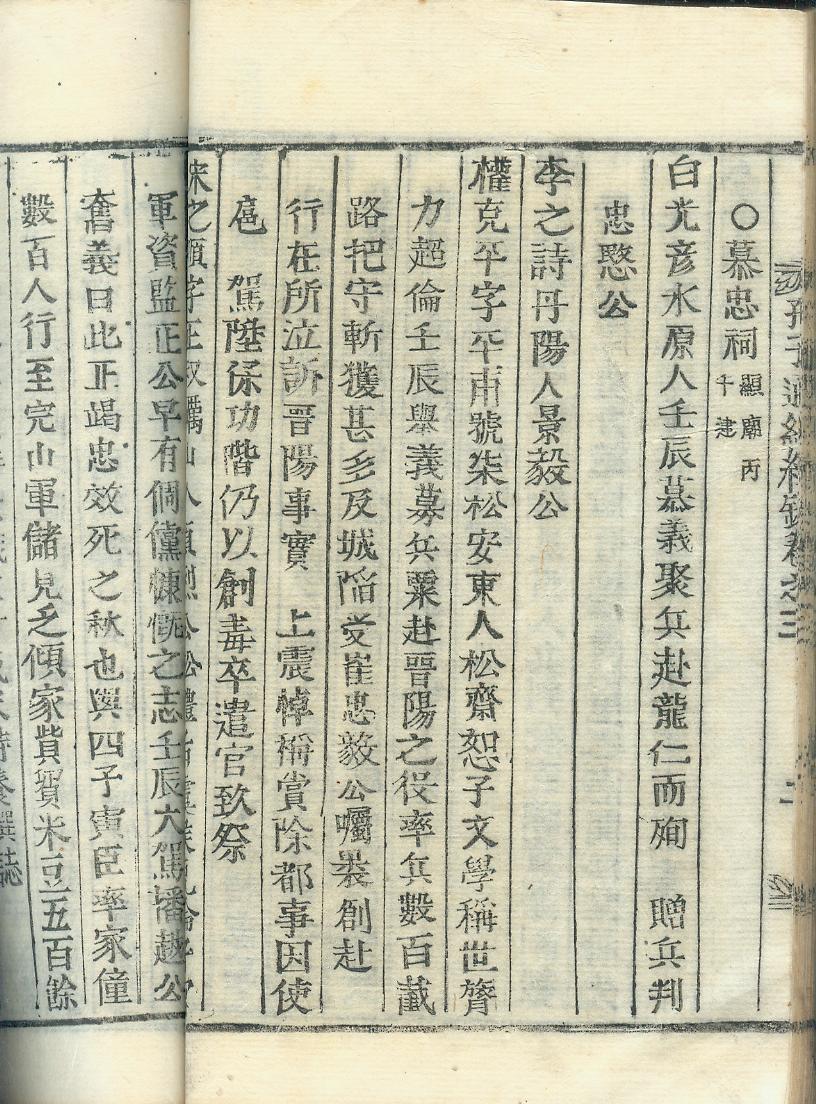 孔子通紀續錄卷之三 二
○慕忠祠 顯廟丙午建
白光彦水原人壬辰慕義聚兵赴龍仁而殉 贈兵判
忠愍公
李之詩丹陽人景毅公
權克平字平甫號柒松安東人松齋恕子文學稱世膂
力超倫壬辰舉義募兵粟赴晋陽之役率兵數百截
路把守斬獲甚多及城陷受崔忠毅公囑裹創赴
行在所泣訴晋陽事實 上震悼褊賞除都事因使
扈 駕陞保功階仍以創毒卒遣官致祭
軍資監正公早有倜儻慷慨之志壬辰大駕播越公
奮義曰此正竭忠效死之秋也與四子寅臣率家僮
數百人行至完山軍儲見乏傾家貲貿米豆五百餘